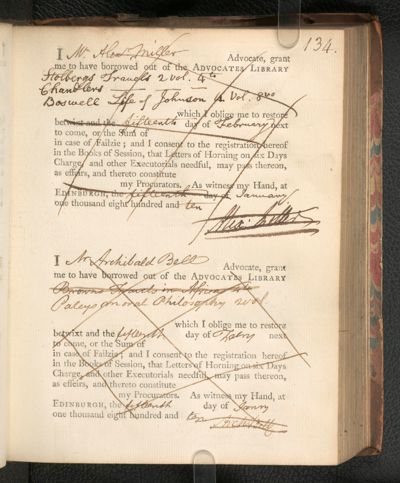 134.
I Mr. Alexr. Miller Advocate, grant
me to have borrowed out of the ADVOCATES LIBRARY
Stolbergs Travels 2 vol. 4to
Chandlers — — —
Boswell Life of Johnson 4 Vol. 8vo
which I oblige me to restore
betwixt and the fifteenth day of February next
to come, or the Sum of
in case of Failzie; and I consent to the registration hereof
in the Books of Session, that Letters of Horning on six Days
Charge, and other Executorials needful, may pass thereon,
as effeirs, and thereto constitute
my Procurators. As witness my Hand, at
EDINBURGH, the fifteenth day of January
one thousand eight hundred and ten
Alexr. Miller
I Mr Archibald Bell Advocate, grant
me to have borrowed out of the ADVOCATES LIBRARY
Browns Travels in Africa
Paleys moral Philosophy 2 vol
which I oblige me to restore
betwixt and the fifteenth day of Febry next
to come, or the Sum of
in case of Failzie; and I consent to the registration hereof
in the Books of Session, that Letters of Horning on six Days
Charge, and other Executorials needful, may pass thereon,
as effeirs, and thereto constitute
my Procurators. As witness my Hand, at
EDINBURGH, the fifteenth day of Janry
one thousand eight hundred and ten
Archd Bell